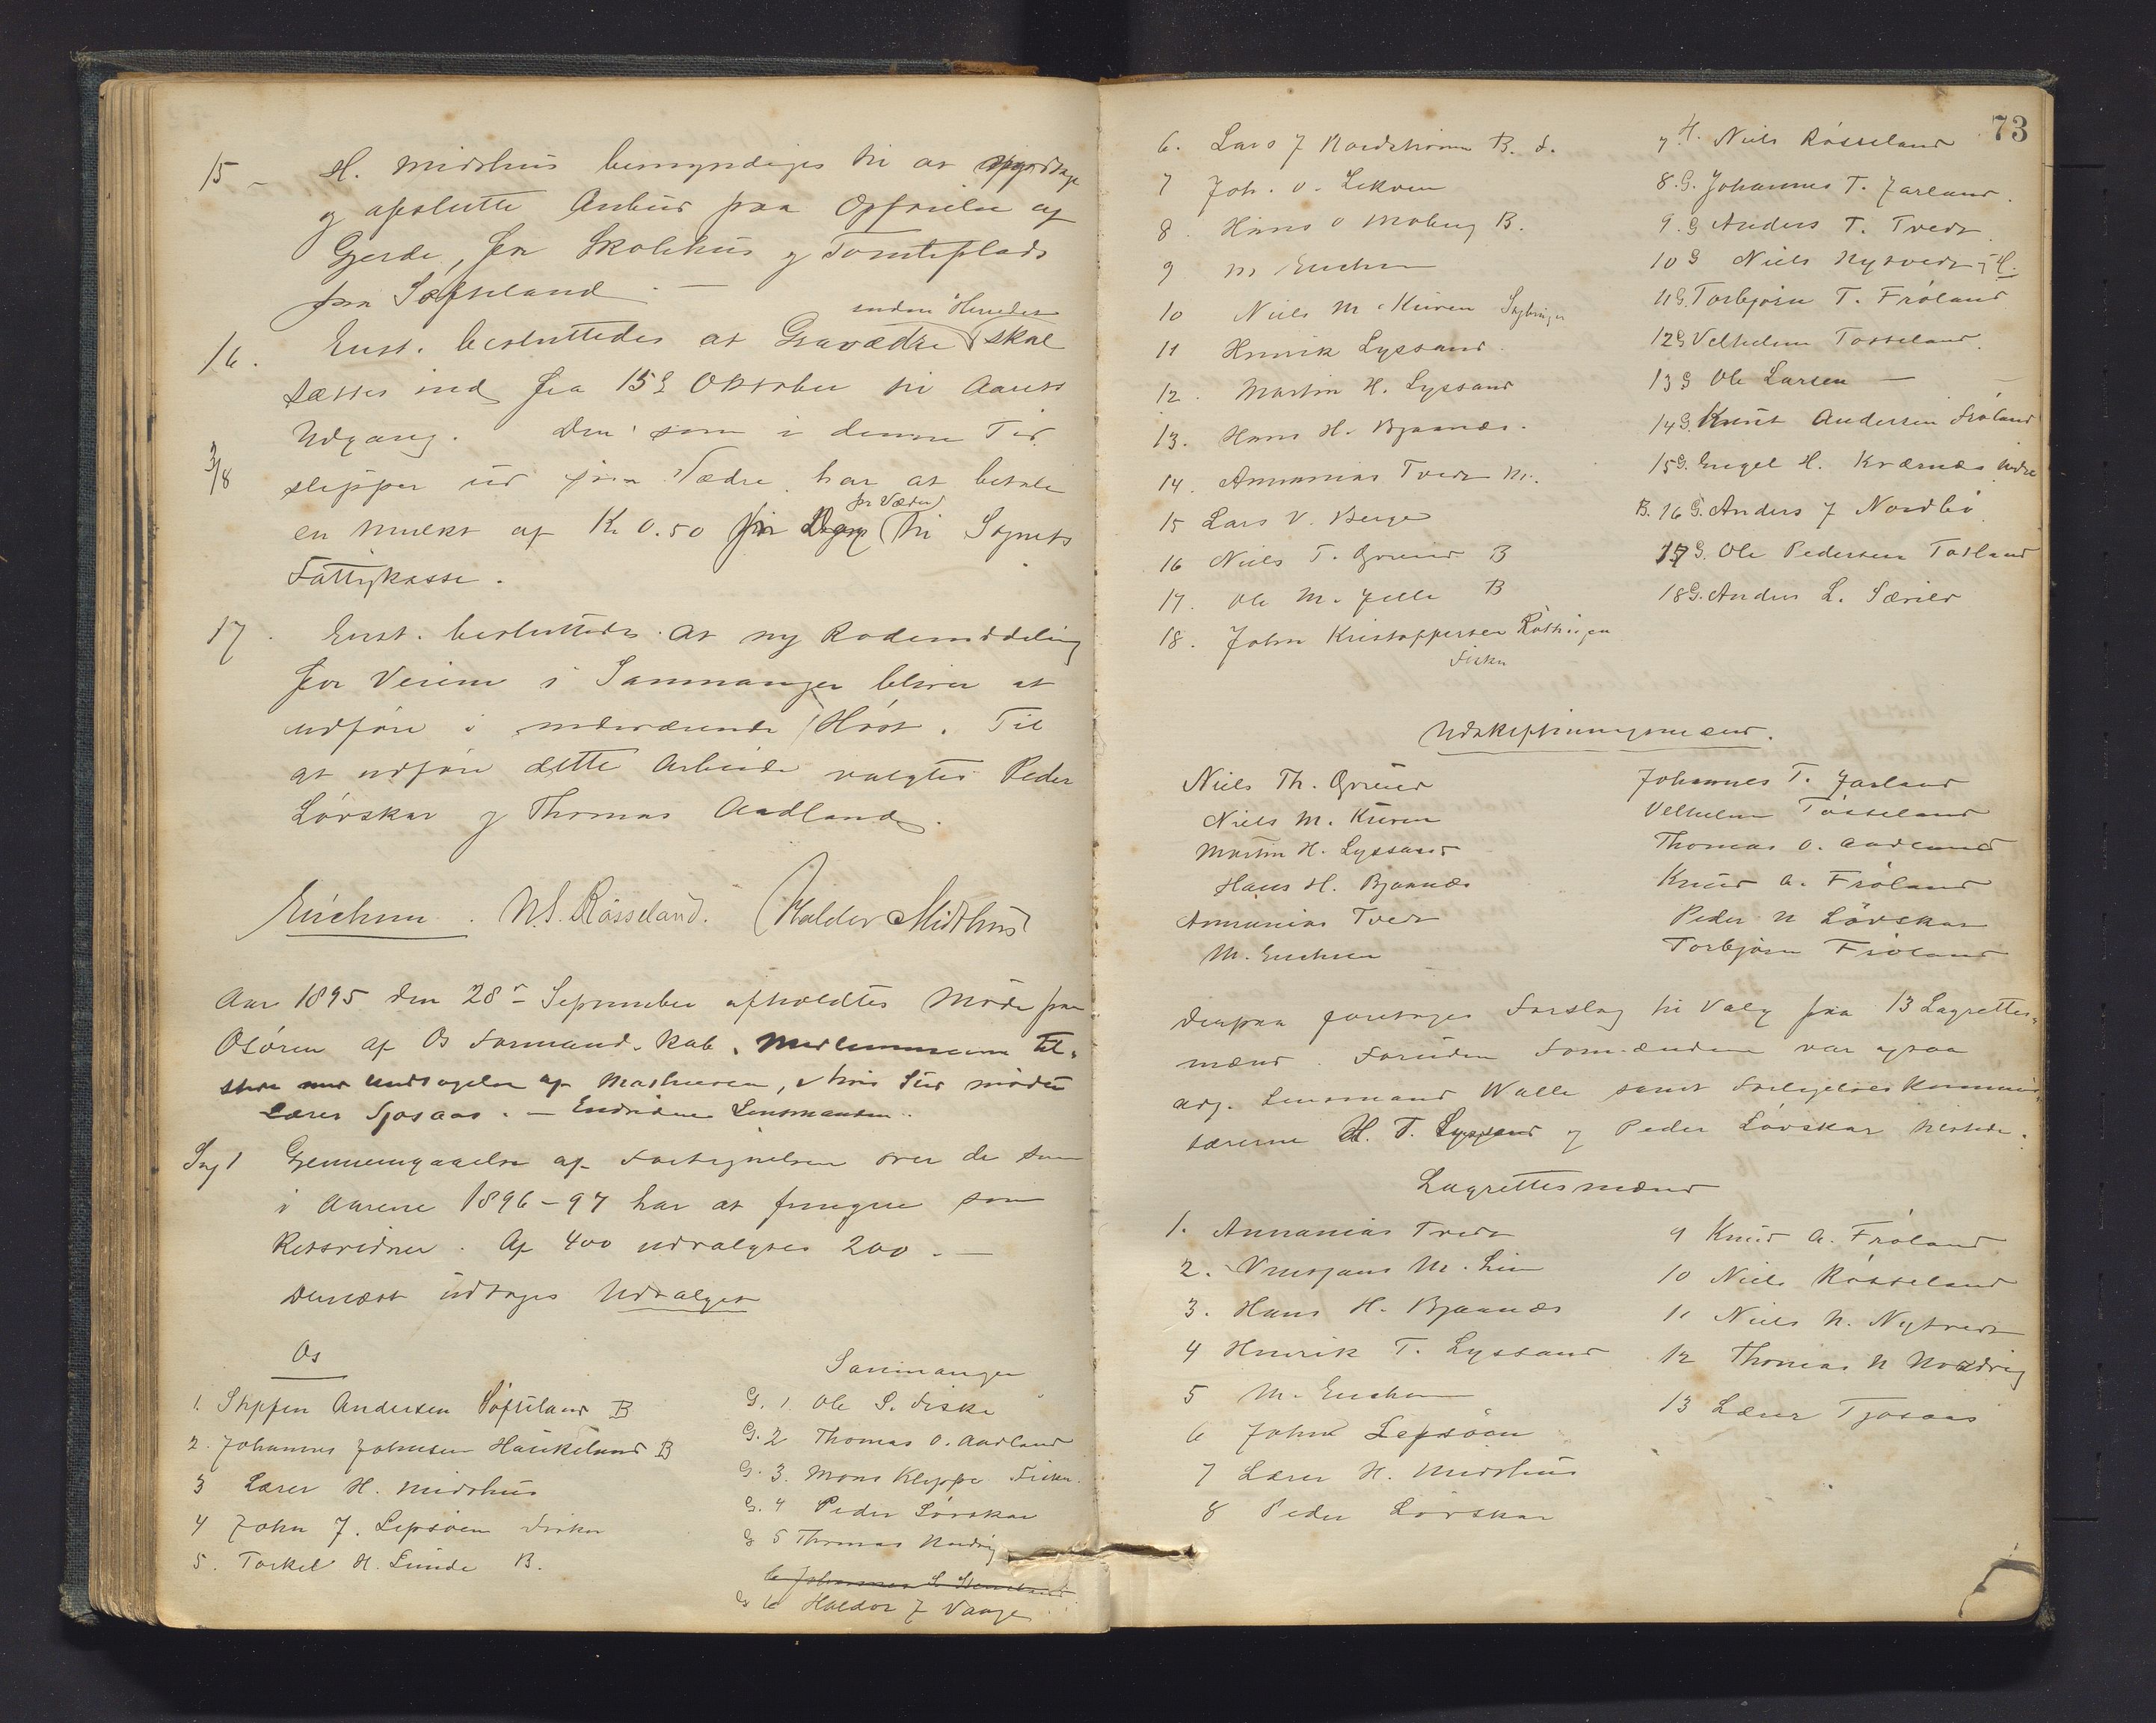 15 - H. Midthus bemyndiges til at
og afslutte Anbud paa Opførelse af
Gjerde, for Skolehus og Tomteplads
paa Søfteland. —
inden Herredet
16. Enst. besluttedes at Gravædre skal
sættes ind fra 15de Oktober til Aarets
Udgang. Den som i denne Tid
3/8 slipper ud sin Vædre har at betale
pr Væder
en Mulkt af Kr 0.50 for Dag til Sognets
Fattigkasse.
17. Enst. besluttedes at ny Rodeinddeling
for Veiene i Sammanger bliver at
udføre i nærværende Høst. Til
at udføre dette Arbeide valgtes Peder
Løvskar og Thomas Aadland.
Erichsen. N. S. Røsseland. Haldor Midthus
Aar 1895 den 28de September afholdtes Møde paa
Osøren af Os Formandskab. Medlemmerne til-
stede med Undtagelse af , i hvis Sted mødte
Lærer Tjosaas. — Endvidere Lensmanden.
Sag 1 Gjennemgaaelse af Fortegnelsen over de som
i Aarene 1896-97 har at fungere som
Retsvidner. Af 400 udvalgtes 200. —
Dernæst udtoges Udvalget
Os
1. Steffen Andersen Søfteland B
2. Johannes Johnsen Haukeland B
3 Lærer H. Midthus
4 John J. Lepsøen Fisker
5. Torkel H. Lunde B.
Sammanger
G. 1. Ole S. Fiske
G. 2 Thomas O. Aadland
G. 3. Mons Kleppe Fisker.
G. 4 Peder Løvskar
G 5 Thomas Nordvig
6 Johannes
G 6 Haldor J Vaage
73
6. Lars J Nordstrøm B. d.
7 Joh. O. Lekven
8. Hans O Moberg B.
9 M Erichsen
10 Niels M. Kuven
11 Henrik Lyssand.
12. Martin H. Lyssand
13. Hans H. Bjaanæs.
14. Annanias Tvedt M.
15 Lars V. Berge
16 Niels T. Grind B
17. Ole M. Jelle B
18. John Kristoffersen Røttingen
Fisker
7 H. Niels Røsseland
8. G. Johannes T. Jarland.
9. G Anders T. Tvedt
10 G Niels Nytvedt H.
11 G. Torbjørn T. Frøland
12 G Velhelm Tøsseland.
13 G Ole Larsen —
14 G. Knut Andersen Frøland
15 G. Engel H. Kværnæs Indre
B. 16 G. Anders J Nordbø
17 G. Ole Pedersen Totland
18 G. Anders L. Særild
Udskiftningsmænd.
Niels Th. Grind
Niels M. Kuven
Martin H. Lyssand
Hans H. Bjaanæs
Annanias Tvedt
M. Erichsen
Johannes T. Jarland
Velhelm Tøsseland
Thomas O. Aadland
Knud A. Frøland
Peder N Løvskar
Torbjørn Frøland
Derpaa foretoges Forslag til Valg paa 13 Lagrettes-
mænd. Foruden Formænden var ogsaa
adj. Lensmand Walle samt Forligelseskommis-
særerne H. T. Lyssand og Peder Løvskar tilstede.
Lagrettesmænd
1. Annanias Tvedt
2. M. Lien
3. Hans H. Bjaanæs
4 Henrik T. Lyssand
5 M. Erichsen
6 John Lepsøen
7 Lærer H. Midthus
8 Peder Løvskar
9 Knud A. Frøland
10 Niels Røsseland
11 Niels N. Nytvedt
12 Thomas N Nordvig
13 Lærer Tjosaas